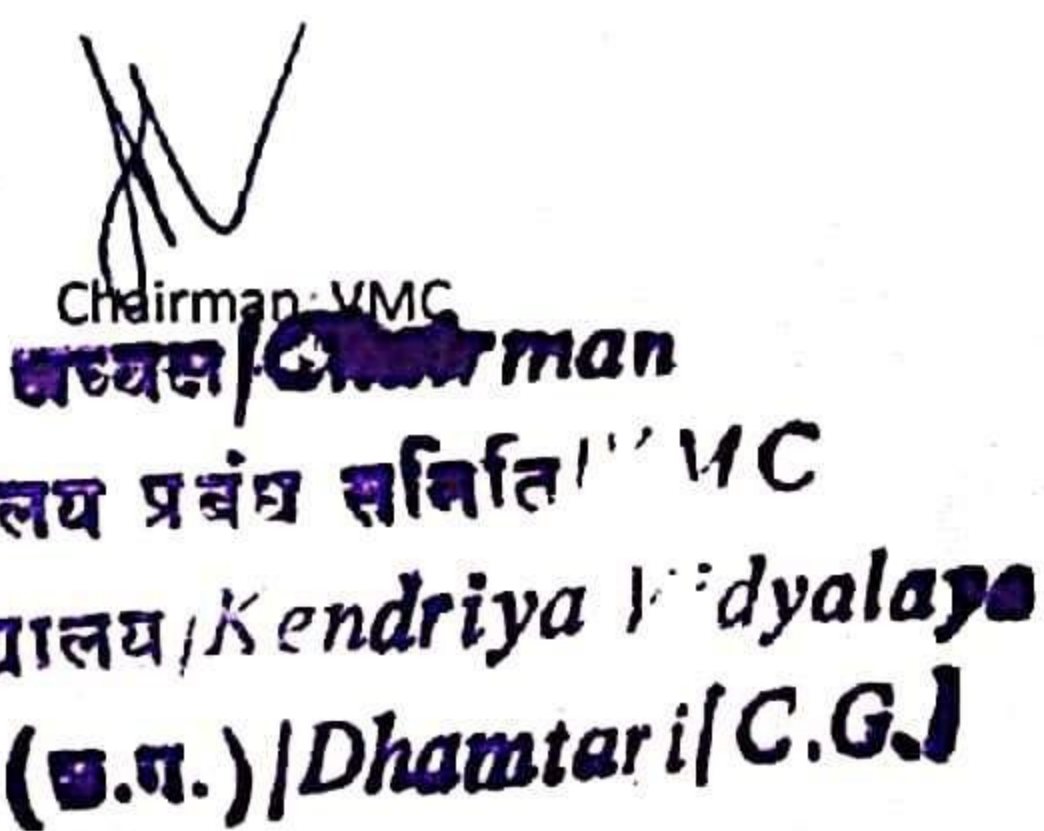 Chairman, VMC
अध्यक्ष/Chairman
लय प्रबंध समिति/VMC
यालय/Kendriya Vidyalaya
(छ.ग.)/Dhamtari(C.G.)